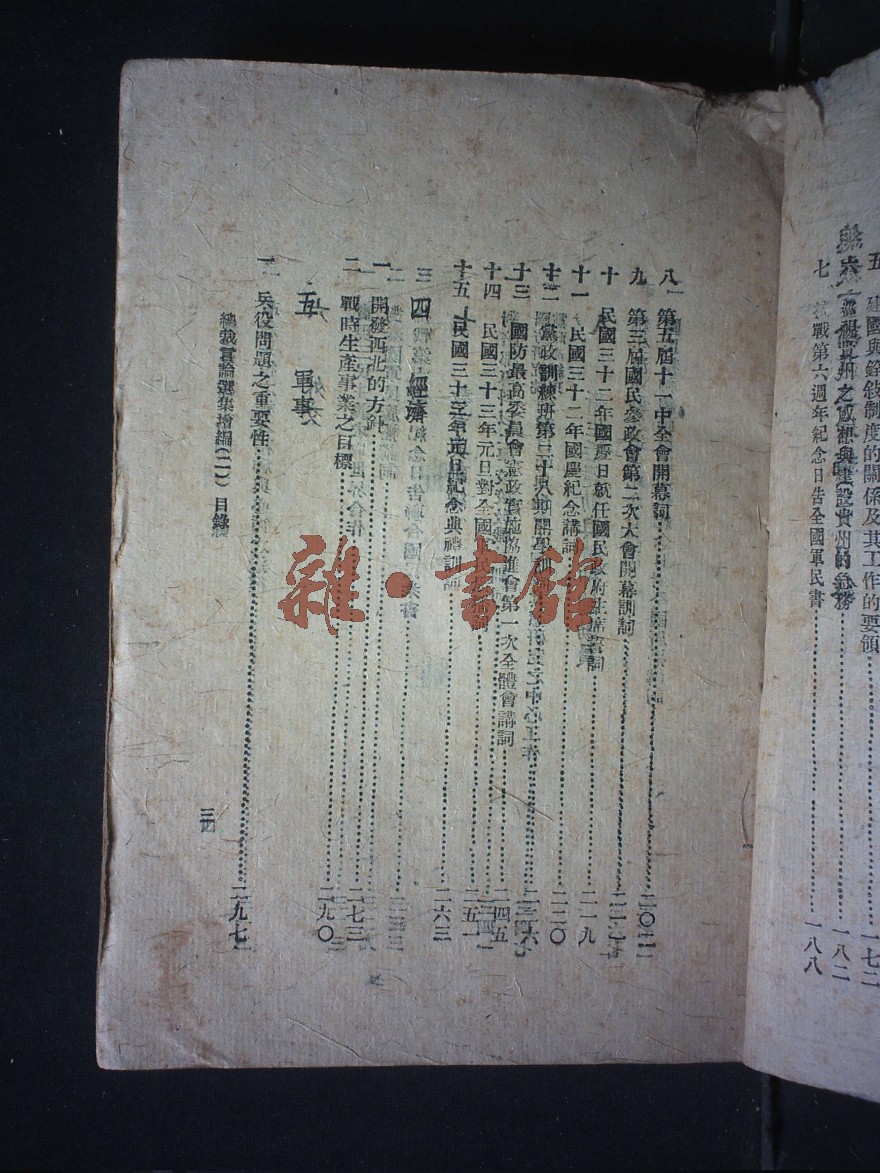 五 建國與銓敍制度的關係及其工作的要領……一七二
之感想與建設貴州的急務……一八二
七 抗戰第六週年紀念日告全國軍民書……一八八
八 第五屆十一中全會開幕詞……二〇二
九 第三屆國民參政會第二次大會開幕訓詞
十 民國三十二年國慶日就任國民政府主席答詞……二一九
十一 民國三十二年國慶紀念講詞……二二〇
十二 黨政訓練班第二十八期開學訓詞……二三六
十三 國防最高委員會憲政實施協進會第一次全體會講詞……二四五
十四 民國三十三年元旦對全國軍民……二五一
十五 民國三十三年元旦紀念典禮訓詞……二六三
四 經濟
一 開發西北的方針……二七三
二 戰時生產事業之目標……二九〇
五 軍事
一 兵役問題之重要性……二九七
總裁言論選集增編(二) 目錄
三四
雜·書館